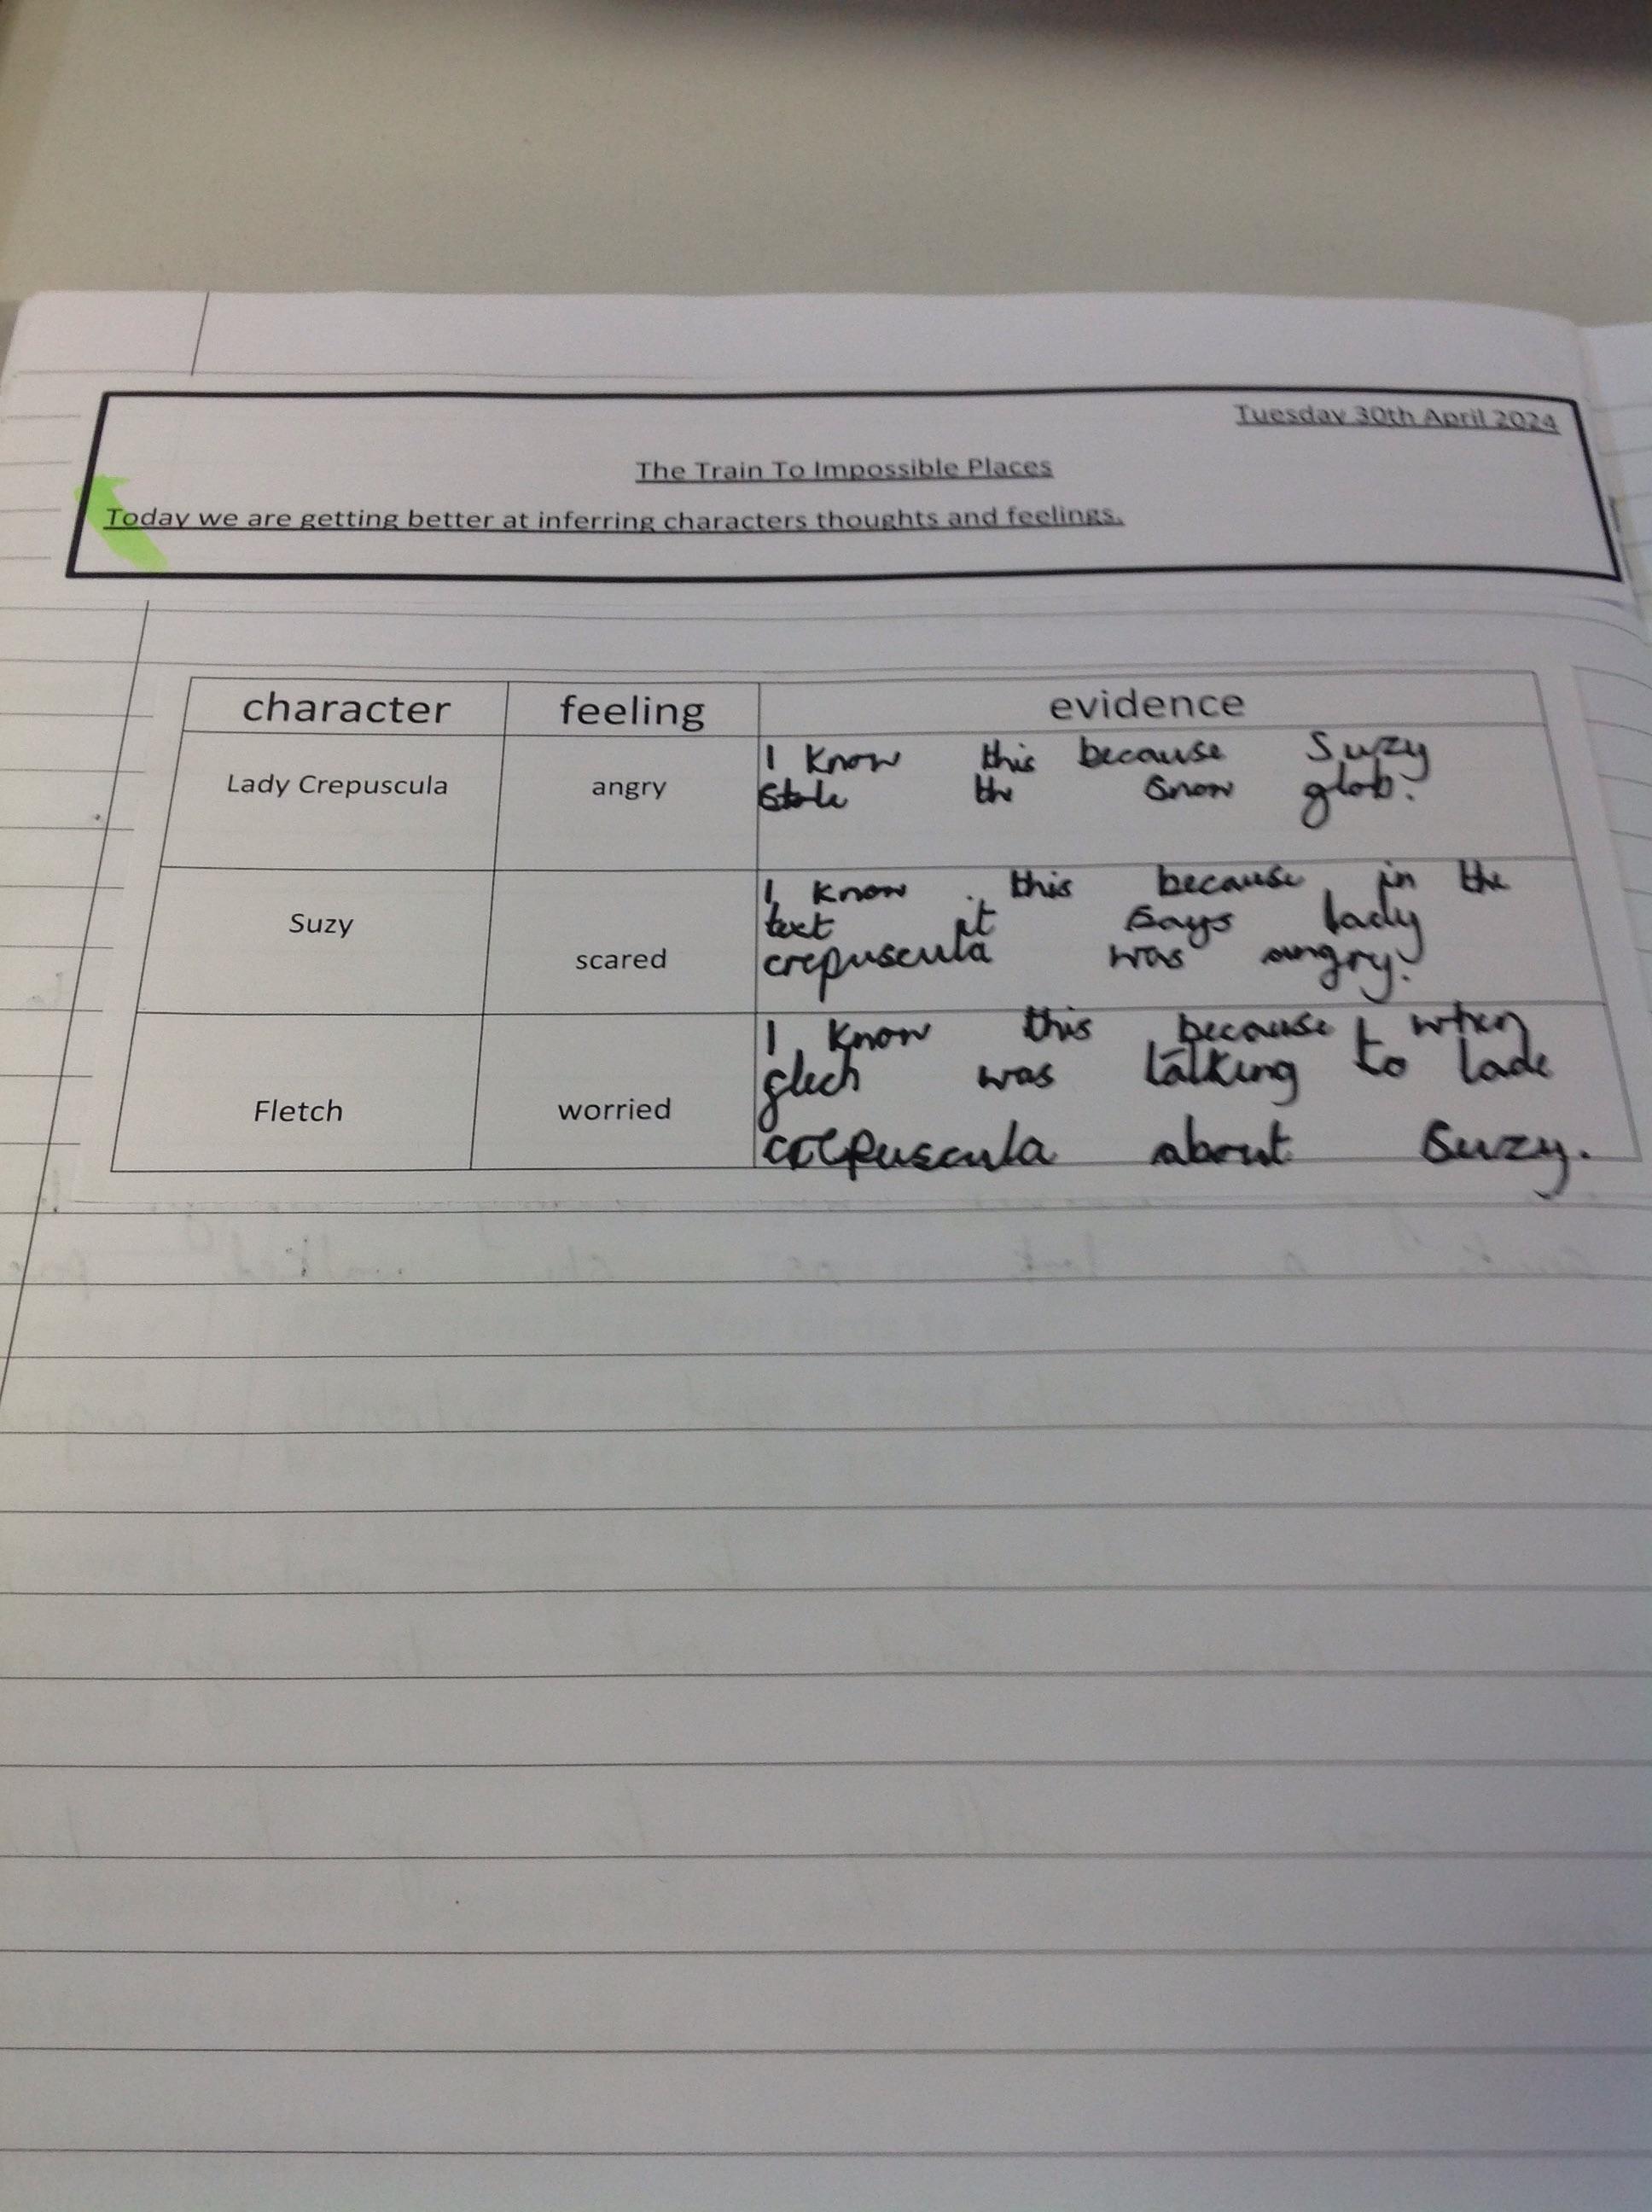 Tuesday 30th April 2024
The Train To Impossible Places
Today we are getting better at inferring characters thoughts and feelings.
character feeling evidence
Lady Crepuscula angry
I know this because Suzy
stole the snow glob.
Suzy scared
I know this because in the
text it says lady
crepuscula was angry.
Fletch worried
I know this because when
flech was talking to lade
crepuscula about Suzy.